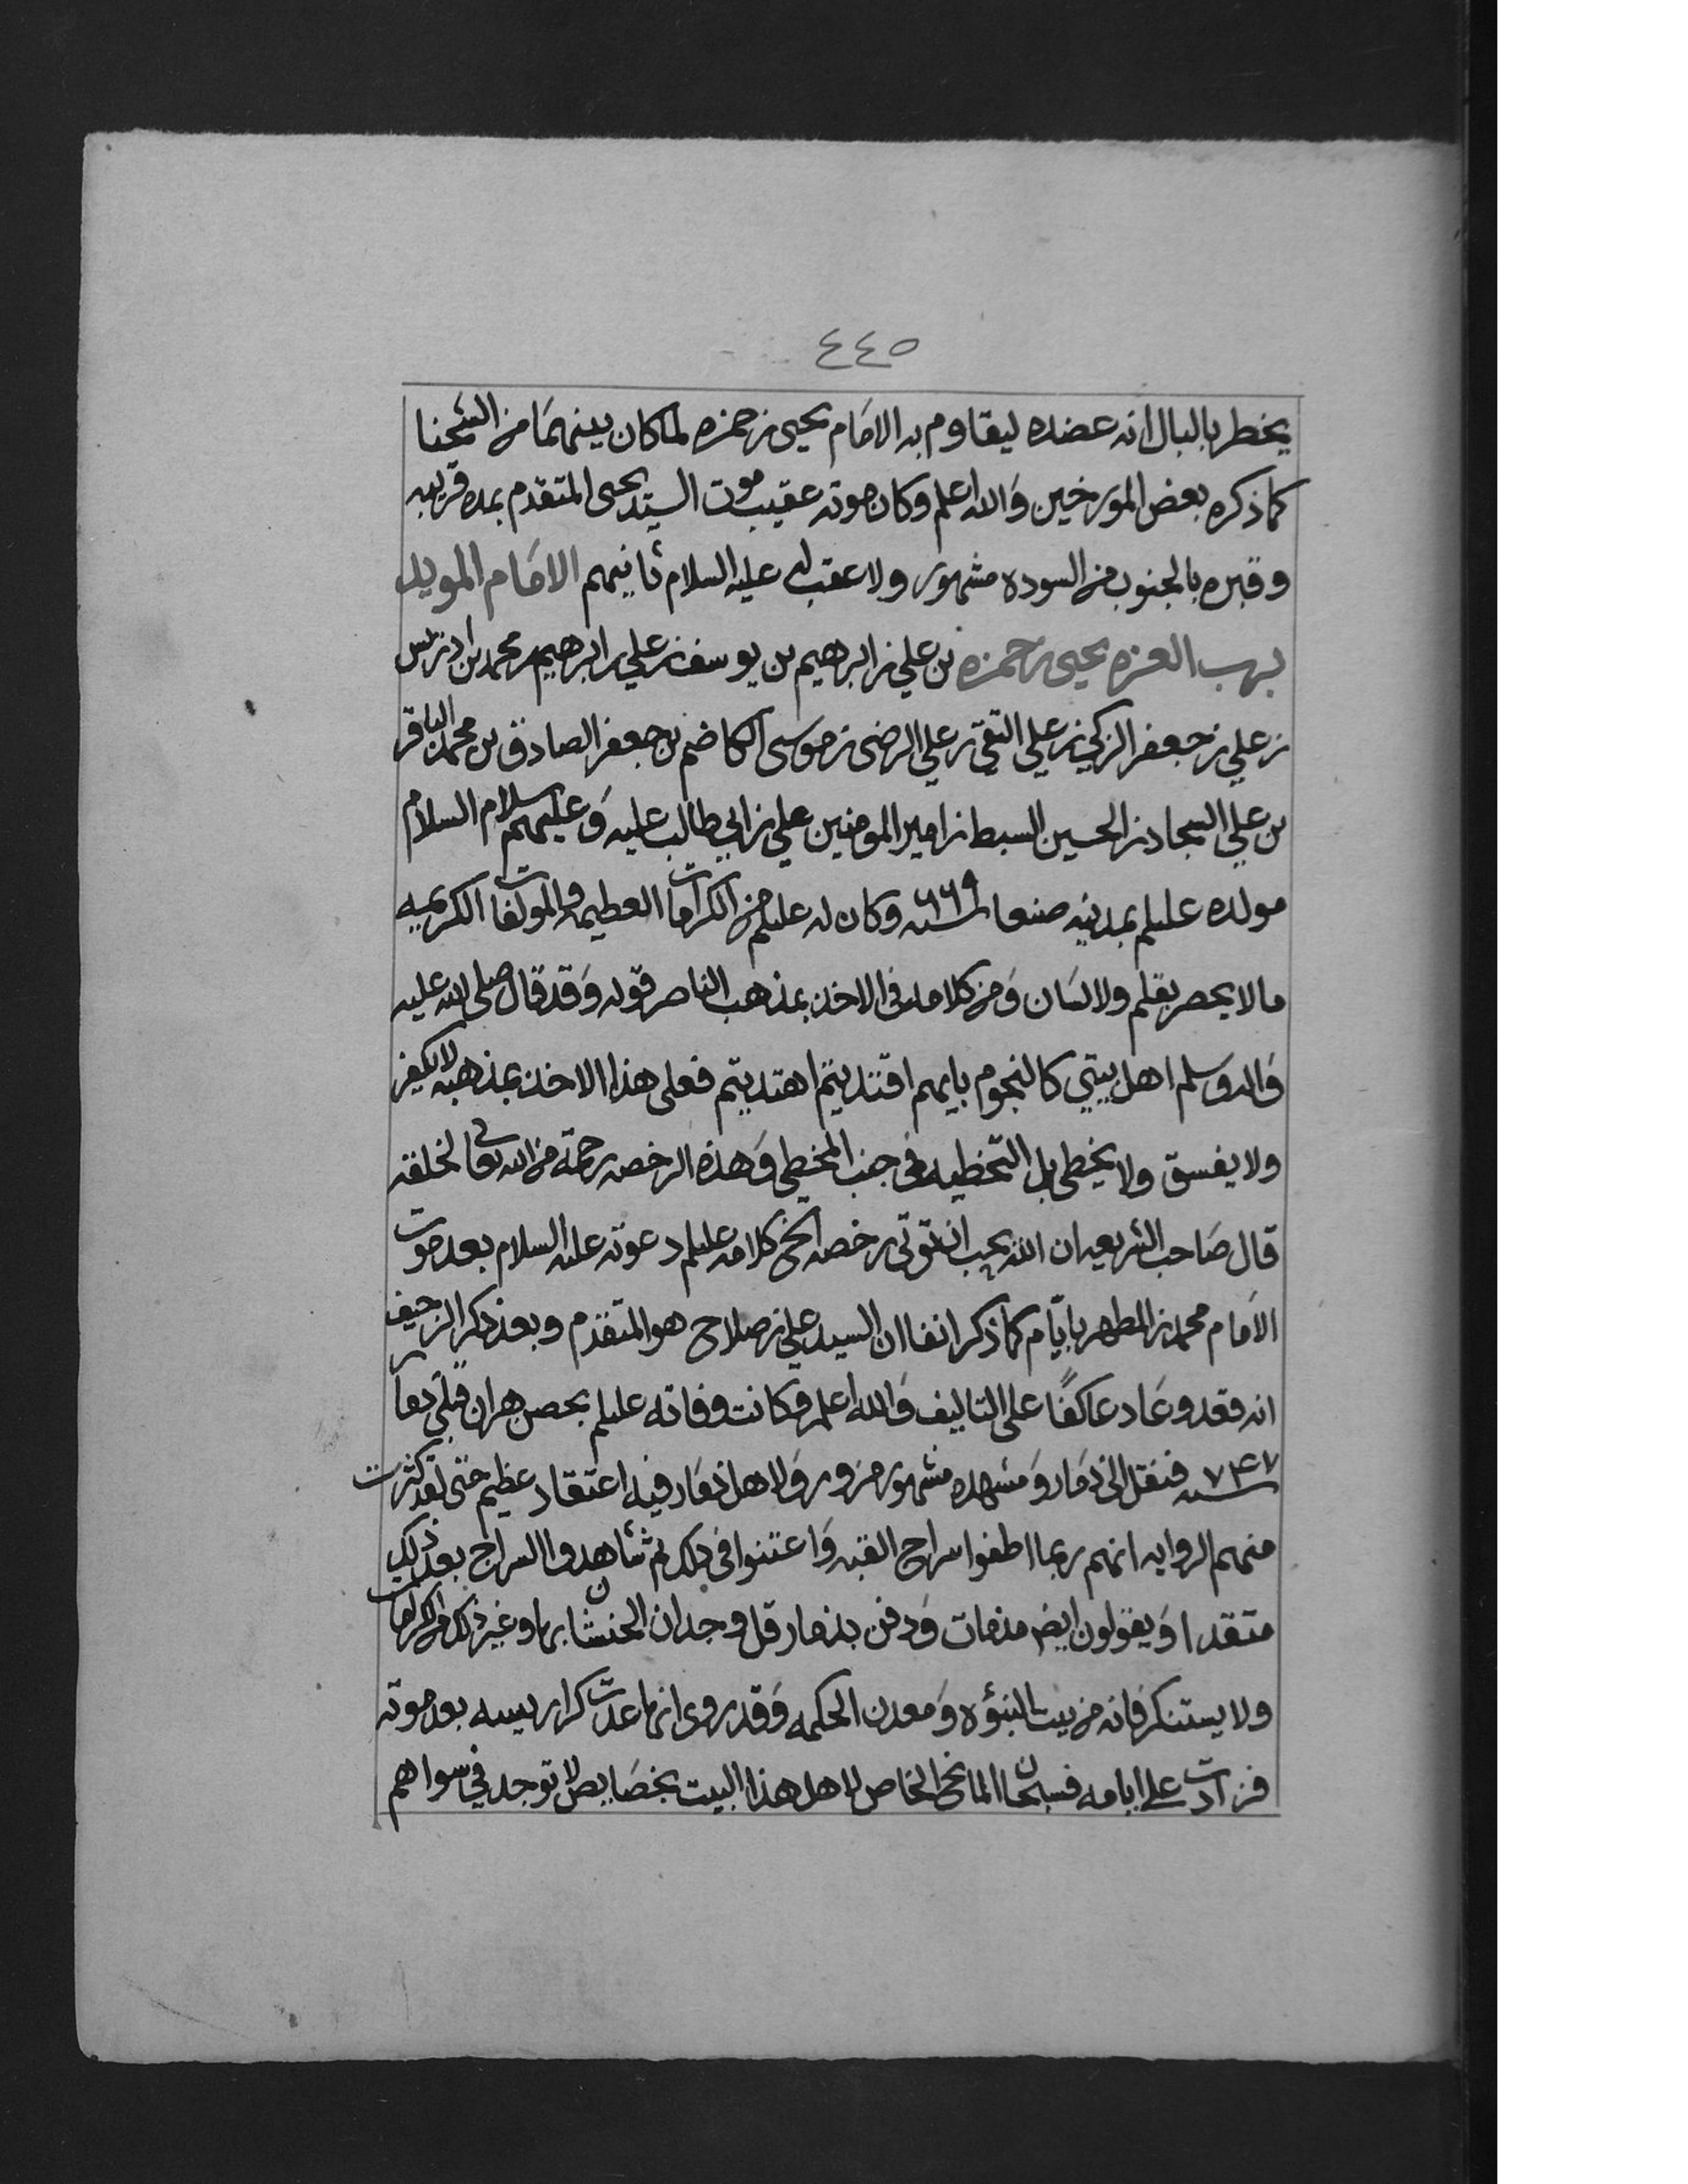 ٤٤٥
يخطر بالبال انه عضده ليقاوم به الامام يحيى بن حمزه لما كان بينهما من الشحنا
كما ذكره بعض المورخين والله اعلم وكان موته عقيب موت السيد يحيى المتقدم بمده قريبه
وقبره بالجنوب من السوده مشهور ولا عقب له عليه السلام ثانيهم الامام المويد
برب العزه يحيى بن حمزه بن علي بن ابرهيم بن يوسف بن علي بن ابرهيم بن محمد بن ادريس
بن علي بن جعفر الزكي بن علي التقي بن علي الرضى بن موسى الكاضم بن جعفر الصادق بن محمد الباقر
بن علي السجاد بن الحسين السبط بن امير المومنين علي بن ابي طالب عليه وعليهم سلام السلام
مولده عليلم بمدينه صنعا سنه ٦٦٩ وكان له عليلم من الكرامات العظيمه والمولفات الكريمه
ما لا يحصر بقلم ولا لسان ومن كلامه في الاخذ بمذهب الناصر قوله وقد قال صلى الله عليه
واله وسلم اهل بيتي كالنجوم بايهم اقتديتم اهتديتم فعلى هذا الاخذ بمذهبه لا يكفر
ولا يفسق ولا يخطي بل التخطيه في جنب المخطي وهذه الرخصه رحمة من الله تعالى لخلقه
قال صاحب الشريعه ان الله يحب ان توتى رخصه الخ كلامه عليلم دعوته عليه السلام بعد موت
الامام محمد بن المطهر بايام كما ذكر انفا ان السيد علي بن صلاح هو المتقدم وبعد ذكر الزحيف
انه قعد وعاد عاكفًا على التاليف والله اعلم وكانت وفاته عليلم بحصن هران قبلي ذمار
سنه ٧٤٧ فنقل الى ذمار ومشهده مشهور مزور ولاهل ذمار فيه اعتقاد عظيم حتى لقد كثرت
منهم الروايه انهم ربما اطفوا سراج القبه واعتنوا في ذلك ثم شاهدوا السراج بعد ذلك
متقدا ويقولون ايض منذ مات ودفن بذمار قل وجدان الحنشان بها وغير ذلك من الكرامات
ولا يستنكر فانه من بيت النبوه ومعدن الحكمه وقد روى انها عدت كراريسه بعد موته
فزادت على ايامه فسبحان المانح الخاص لاهل هذا البيت بخصايص لا توجد في سواهم